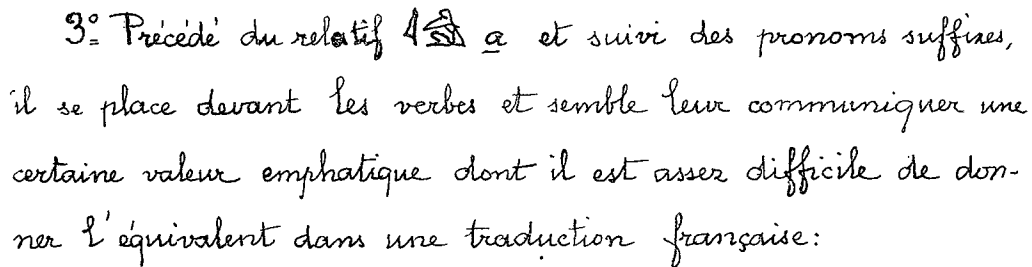 3º Précédé du relatif 𓇋𓀁 a et suivi des pronoms suffixes,
il se place devant les verbes et semble leur communiquer une
certaine valeur emphatique dont il est assez difficile de don-
ner l'équivalent dans une traduction française: